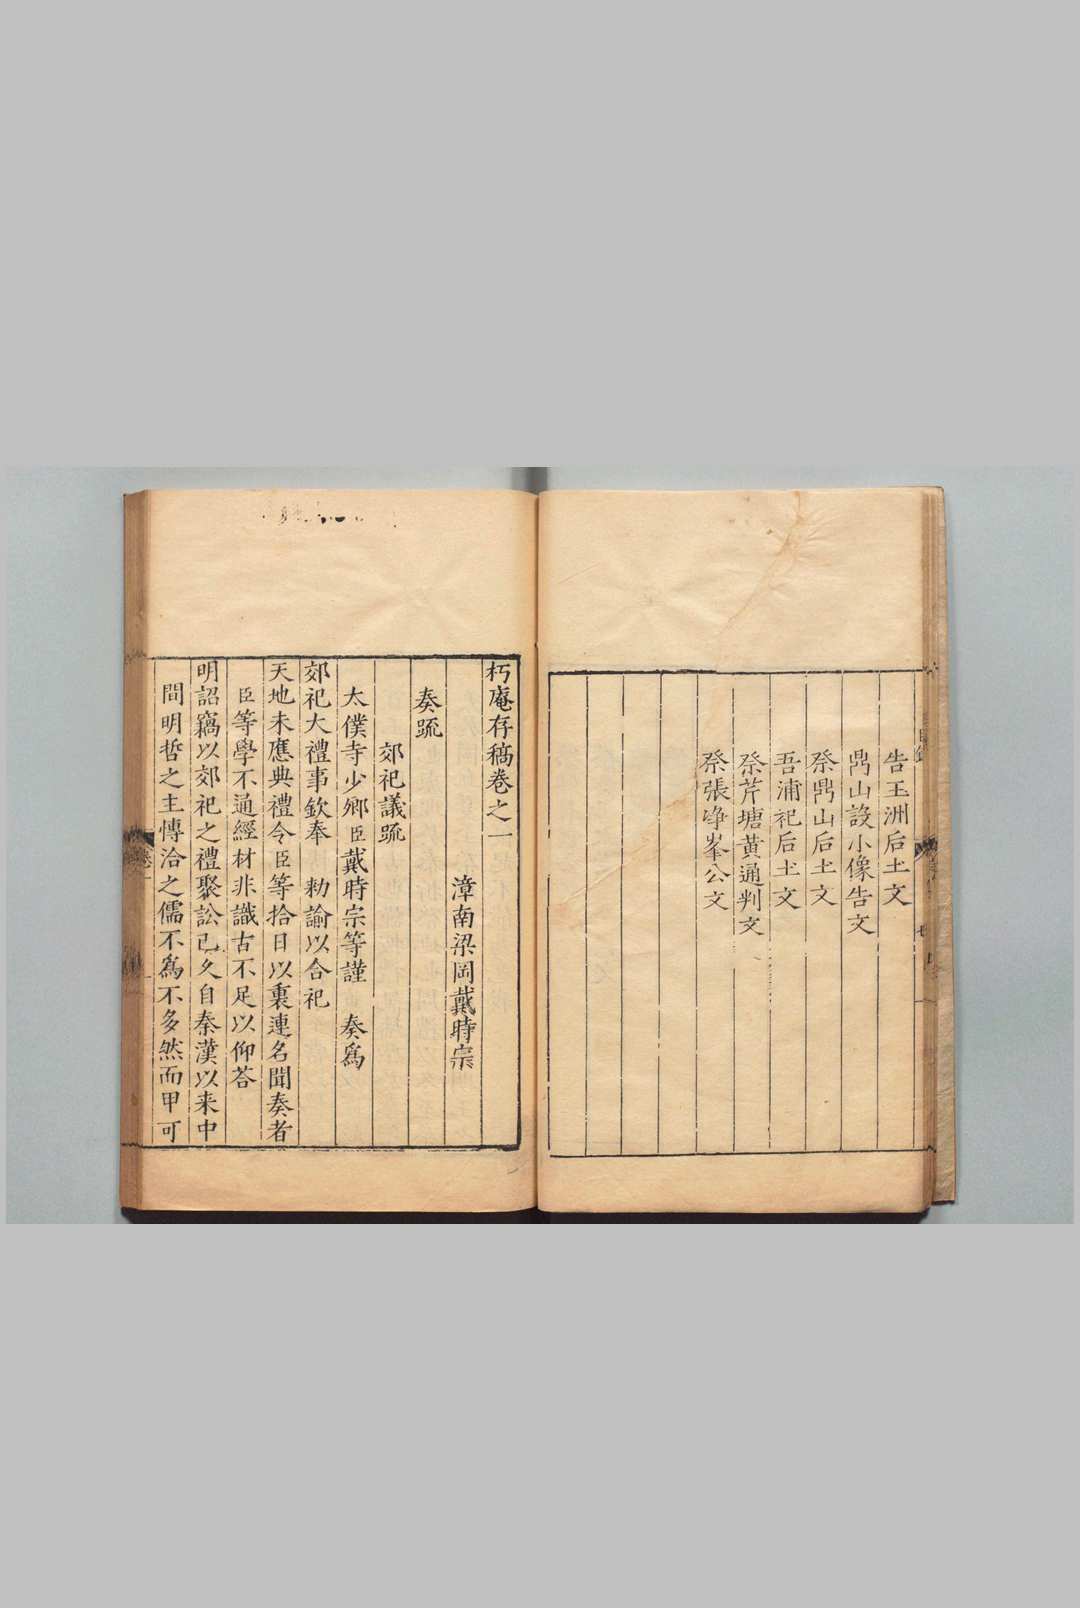 告玉洲后土文
鼎山設小像告文
祭鼎山后土文
吾浦祀后土文
祭芹塘黃通判文
祭張崢峯公文
朽庵存稿卷之一
漳南梁岡戴時宗
奏疏
郊祀議疏
太僕寺少卿臣戴時宗等謹 奏爲
郊祀大禮事欽奉 勅諭以合祀
天地未應典禮令臣等拾日以裏連名聞奏者
臣等學不通經材非識古不足以仰荅
明詔竊以郊祀之禮聚訟已久自秦漢以来中
間明哲之主愽洽之儒不爲不多然而甲可